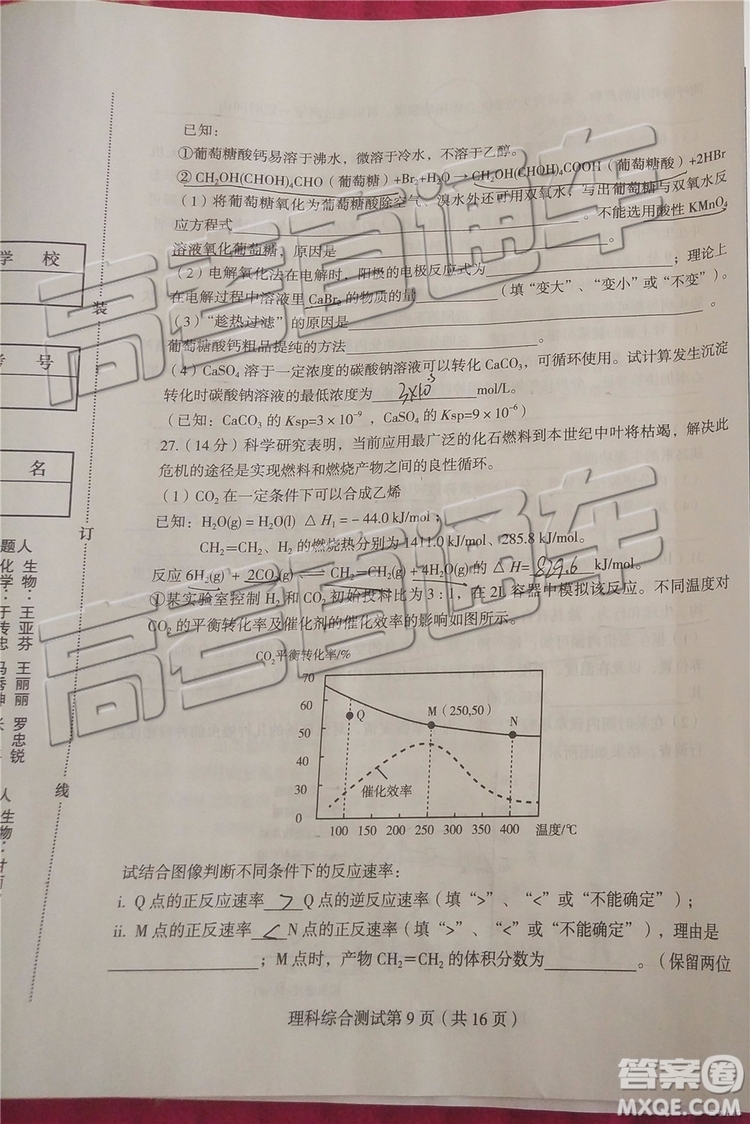 已知：
①葡萄糖酸钙易溶于沸水，微溶于冷水，不溶于乙醇。
②CH₂OH(CHOH)₄CHO（葡萄糖）+Br₂+H₂O→CH₂OH(CHOH)₄COOH（葡萄糖酸）+2HBr
（1）将葡萄糖氧化为葡萄糖酸除空气、溴水外还可用双氧水，写出葡萄糖与双氧水反
应方程式____________________________________。不能选用酸性 KMnO₄
溶液氧化葡萄糖，原因是____________________________________。
（2）电解氧化法在电解时，阳极的电极反应式为____________________；理论上
在电解过程中溶液里 CaBr₂ 的物质的量____________（填“变大”、“变小”或“不变”）。
（3）“趁热过滤”的原因是____________________________________。
葡萄糖酸钙粗品提纯的方法____________________________________
（4）CaSO₄ 溶于一定浓度的碳酸钠溶液可以转化 CaCO₃，可循环使用。试计算发生沉淀
转化时碳酸钠溶液的最低浓度为 3×10⁻³ mol/L。
（已知：CaCO₃ 的 Ksp=3×10⁻⁹，CaSO₄ 的 Ksp=9×10⁻⁶）
27.（14 分）科学研究表明，当前应用最广泛的化石燃料到本世纪中叶将枯竭，解决此
危机的途径是实现燃料和燃烧产物之间的良性循环。
（1）CO₂ 在一定条件下可以合成乙烯
已知：H₂O(g) = H₂O(l) △H₁= – 44.0 kJ/mol；
CH₂=CH₂、H₂ 的燃烧热分别为 1411.0 kJ/mol、285.8 kJ/mol。
反应 6H₂(g) + 2CO₂(g) ⇌ CH₂=CH₂(g) + 4H₂O(g) 的 △H= 829.6 kJ/mol。
①某实验室控制 H₂ 和 CO₂ 初始投料比为 3∶1，在 2L 容器中模拟该反应。不同温度对
CO₂ 的平衡转化率及催化剂的催化效率的影响如图所示。
CO₂平衡转化率/%
70
60
50
40
30
0
Q
M (250,50)
N
催化效率
100 150 200 250 300 350 400 温度/℃
试结合图像判断不同条件下的反应速率：
i. Q 点的正反应速率 > Q 点的逆反应速率（填“>”、“<”或“不能确定”）；
ii. M 点的正反应速率 < N 点的正反应速率（填“>”、“<”或“不能确定”），理由是
____________________；M 点时，产物 CH₂=CH₂ 的体积分数为____________。（保留两位
理科综合测试第 9 页（共 16 页）
学 校
考 号
名
装
订
线
高考直通车
高考直通车
答案圈
MXQE.COM